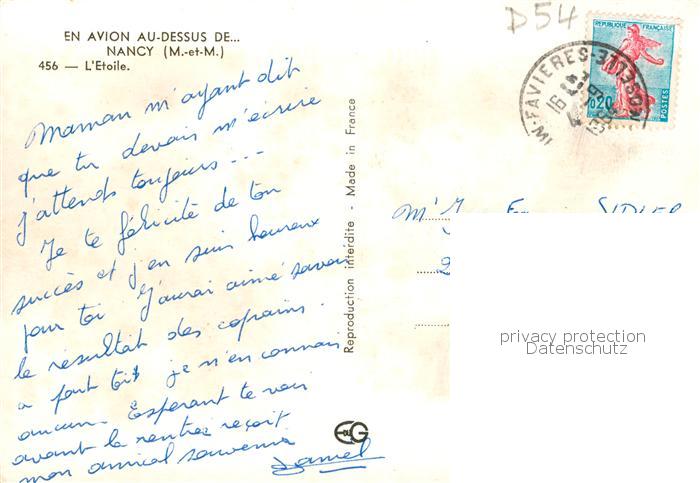 D54
EN AVION AU-DESSUS DE...
NANCY (M.-et-M.)
456 — L'Etoile.
Maman m'ayant dit
que tu devais m'écrire
j'attends toujours ...
Je te félicite de ton
succès et j'en suis heureux
pour toi J'aurai aimé savoir
le résultat des copains.
a part toi je n'en connais
aucun. Espérant te voir
avant la rentrée reçoit
mon amical souvenir
Daniel
Reproduction interdite - Made in France
EG
REPUBLIQUE FRANÇAISE
0,20
POSTES
FAVIERES
MOSELLE
16
M' SIDLER
privacy protection
Datenschutz